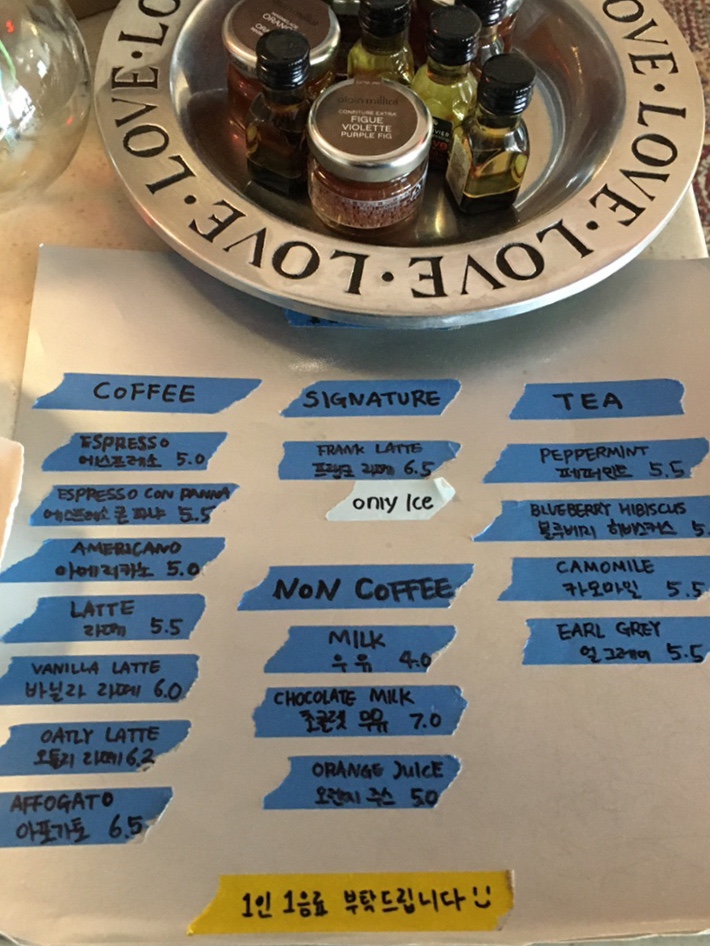 LOVE·LOVE·LOVE·LOVE·LOVE·LOVE·LOVE
ORAN
alain milliat
CONFITURE EXTRA
FIGUE
VIOLETTE
PURPLE FIG
COFFEE
ESPRESSO
에스프레소 5.0
ESPRESSO CON PANNA
에스프레소 콘 파나 5.5
AMERICANO
아메리카노 5.0
LATTE
라떼 5.5
VANILLA LATTE
바닐라 라떼 6.0
OATLY LATTE
오틀리 라떼 6.2
AFFOGATO
아포가토 6.5
SIGNATURE
FRANK LATTE
프랭크 라떼 6.5
only Ice
NON COFFEE
MILK
우유 4.0
CHOCOLATE MILK
초콜렛 우유 7.0
ORANGE JUICE
오렌지 주스 5.0
TEA
PEPPERMINT
페퍼민트 5.5
BLUEBERRY HIBISCUS
블루베리 히비스커스 5.
CAMOMILE
카모마일 5.5
EARL GREY
얼그레이 5.5
1인 1음료 부탁드립니다